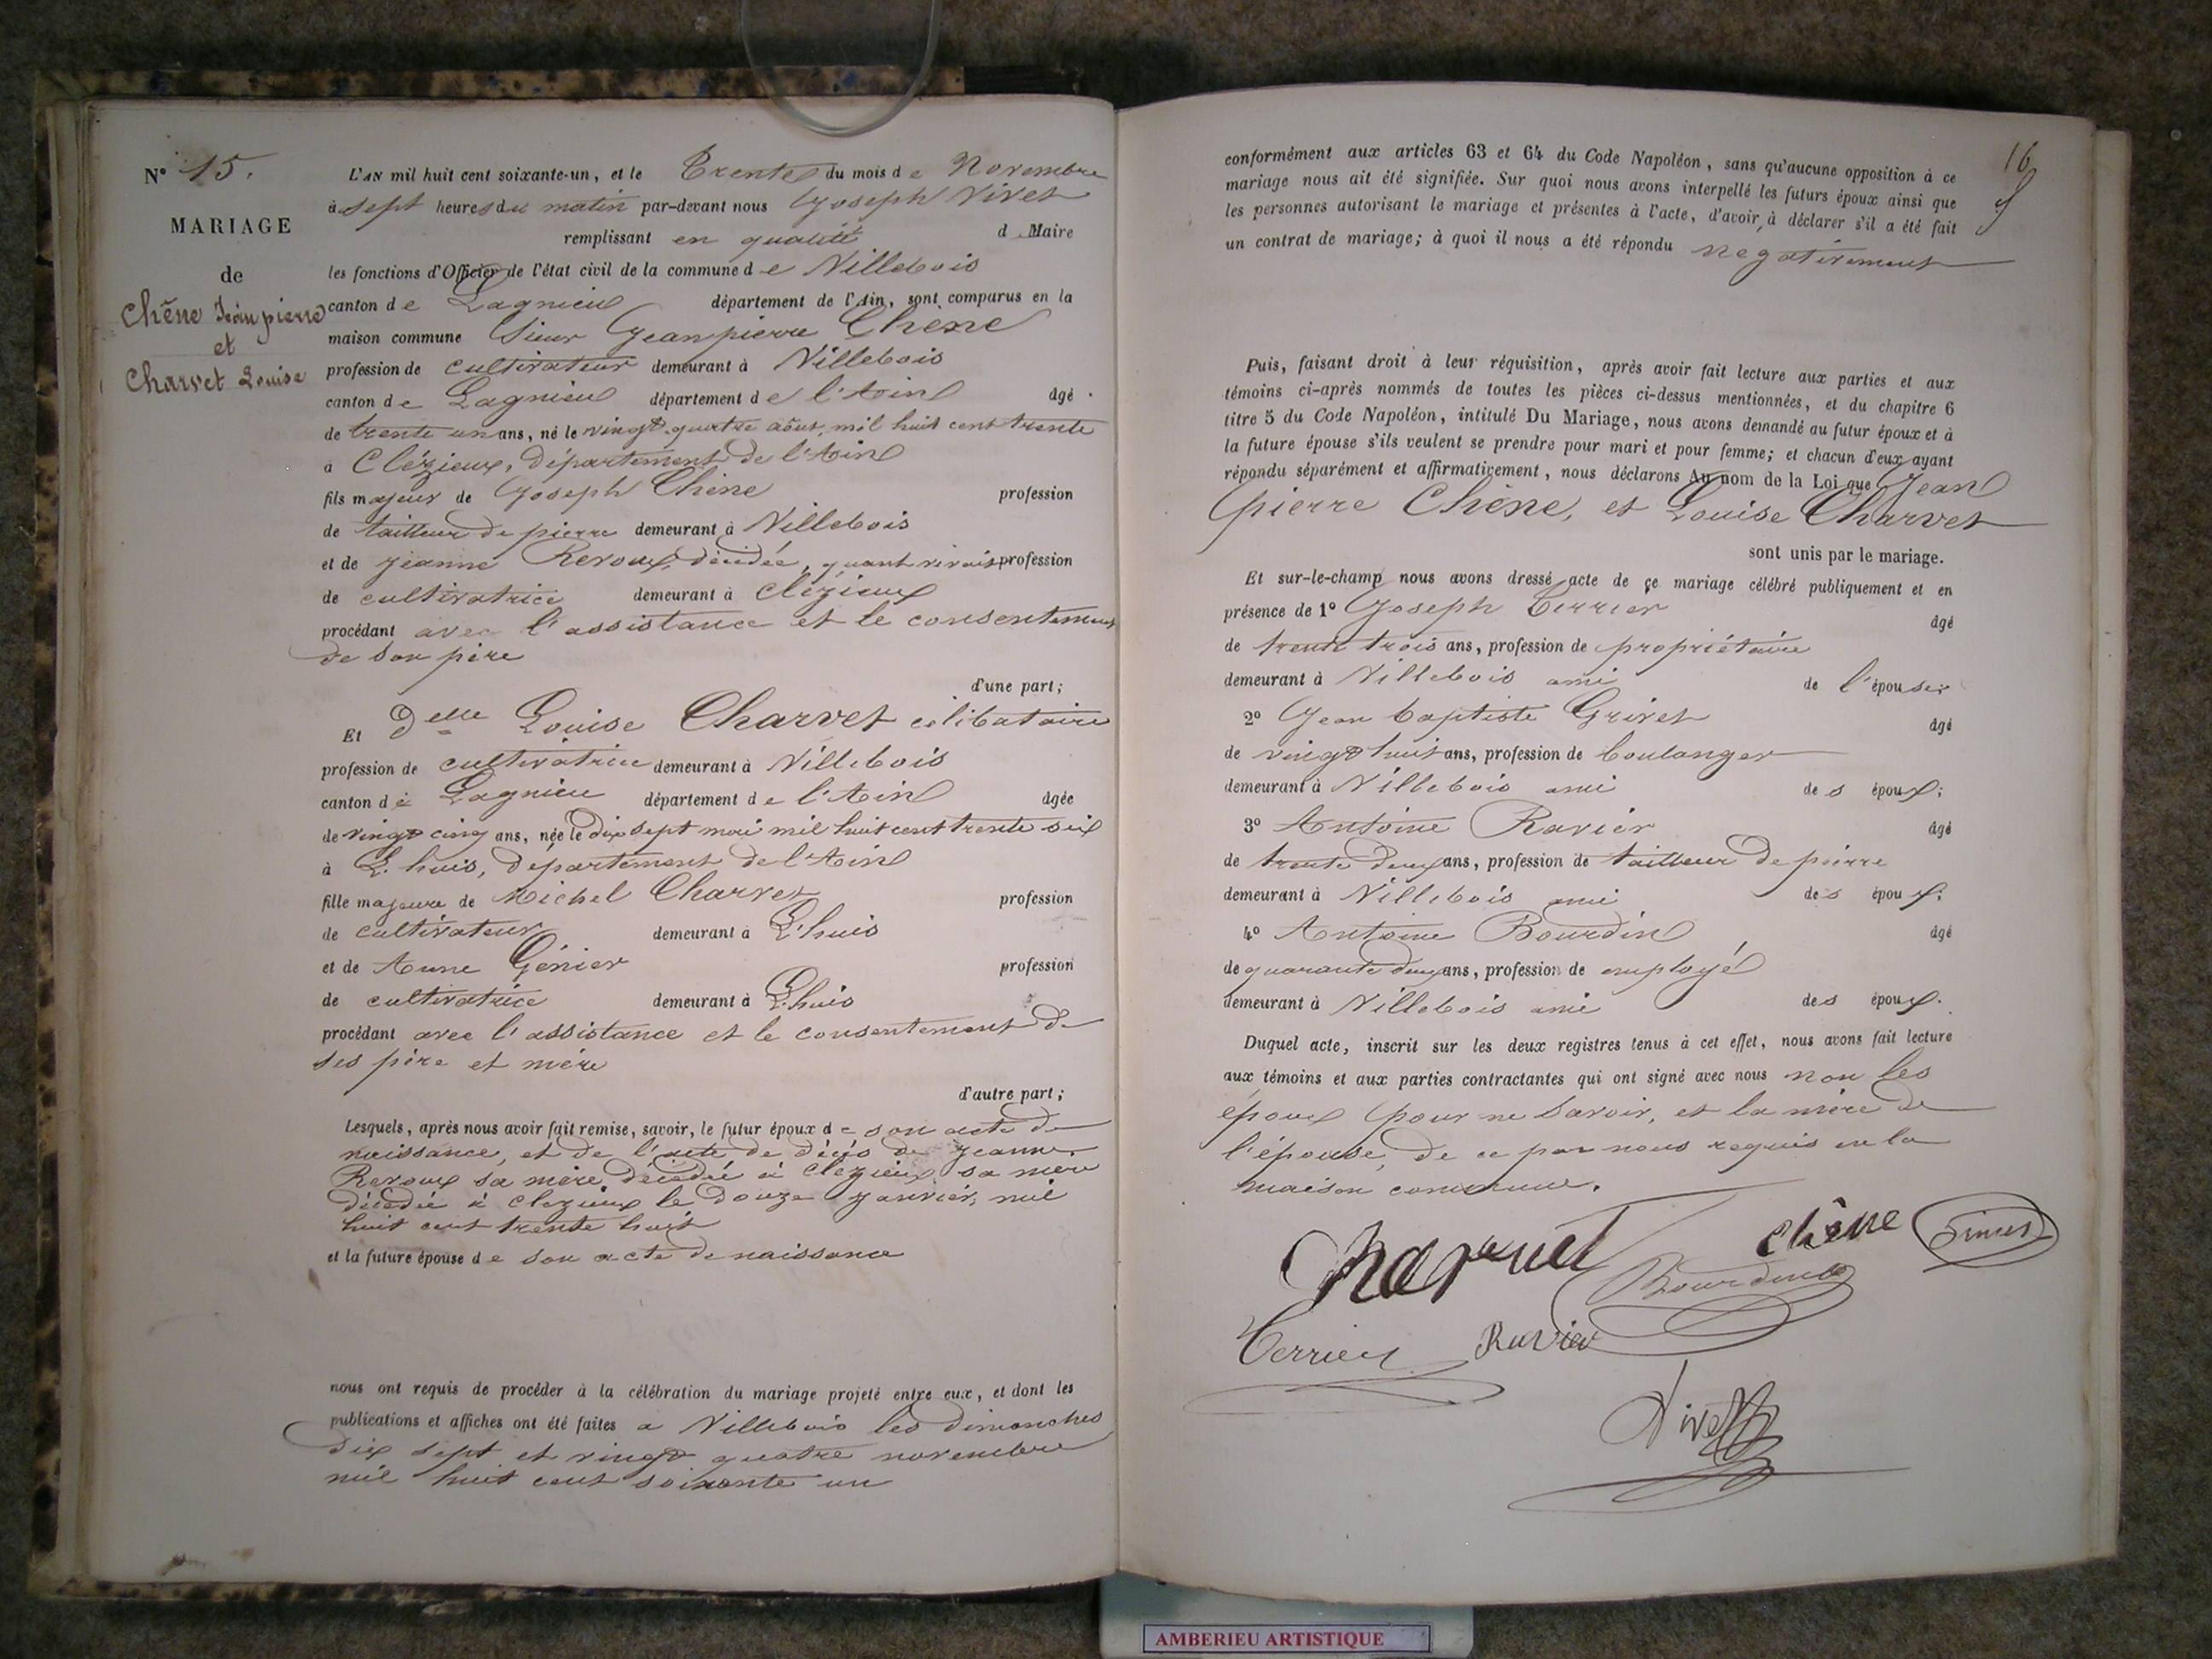 N° 15.
MARIAGE
de
Chêne Jean pierre
et
Charvet Louise
L'AN mil huit cent soixante-un, et le Trente du mois de Novembre
à sept heures du matin par-devant nous Joseph Vivet
remplissant en qualité d Maire
les fonctions d'Officier de l'état civil de la commune de Villebois
canton de Lagnieu département de l'Ain, sont comparus en la
maison commune Sieur Jean pierre Chêne
profession de cultivateur demeurant à Villebois
canton de Lagnieu département de l'Ain âgé
de trente un ans, né le vingt quatre août, mil huit cent trente
à Clézieux, département de l'Ain
fils majeur de Joseph Chêne profession
de tailleur de pierre demeurant à Villebois
et de Jeanne Reroux, décédée, quant vivait profession
de cultivatrice demeurant à Clézieux
procédant avec l'assistance et le consentement
de son père
d'une part;
Et Delle Louise Charvet célibataire
profession de cultivatrice demeurant à Villebois
canton de Lagnieu département de l'Ain âgée
de vingt cinq ans, née le dix sept mai mil huit cent trente six
à L'huis, département de l'Ain
fille majeure de Michel Charvet profession
de cultivateur demeurant à L'huis
et de Anne Génier profession
de cultivatrice demeurant à L'huis
procédant avec l'assistance et le consentement de
ses père et mère
d'autre part;
Lesquels, après nous avoir fait remise, savoir, le futur époux de son acte de
naissance, et de l'acte de décès de Jeanne
Reroux sa mère, décédée à Clezieux sa mère
décédée à Clezieux le douze Janvier, mil
huit cent trente huit
et la future épouse de son acte de naissance
nous ont requis de procéder à la célébration du mariage projeté entre eux, et dont les
publications et affiches ont été faites a Villebois les dimanches
dix sept et vingt quatre novembre
mil huit cent soixante un
16
conformément aux articles 63 et 64 du Code Napoléon, sans qu'aucune opposition à ce
mariage nous ait été signifiée. Sur quoi nous avons interpellé les futurs époux ainsi que
les personnes autorisant le mariage et présentes à l'acte, d'avoir à déclarer s'il a été fait
un contrat de mariage; à quoi il nous a été répondu négativement
Puis, faisant droit à leur réquisition, après avoir fait lecture aux parties et aux
témoins ci-après nommés de toutes les pièces ci-dessus mentionnées, et du chapitre 6
titre 5 du Code Napoléon, intitulé Du Mariage, nous avons demandé au futur époux et à
la future épouse s'ils veulent se prendre pour mari et pour femme; et chacun d'eux ayant
répondu séparément et affirmativement, nous déclarons Au nom de la Loi que Jean
pierre Chêne, et Louise Charvet
sont unis par le mariage.
Et sur-le-champ nous avons dressé acte de ce mariage célébré publiquement et en
présence de 1° Joseph Terrier âgé
de trente trois ans, profession de propriétaire
demeurant à Villebois ami de l'épouse
2° Jean baptiste Grivet âgé
de vingt huit ans, profession de boulanger
demeurant à Villebois ami des époux;
3° Antoine Ravier âgé
de trente deux ans, profession de tailleur de pierre
demeurant à Villebois ami des époux;
4° Antoine Bourdin âgé
de quarante deux ans, profession de employé
demeurant à Villebois ami des époux.
Duquel acte, inscrit sur les deux registres tenus à cet effet, nous avons fait lecture
aux témoins et aux parties contractantes qui ont signé avec nous non les
époux pour ne savoir, et la mère de
l'épouse, de ce par nous requis en la
maison commune.
Charvet Chêne
Bourdin
Terrier Ravier
Vivet
AMBERIEU ARTISTIQUE